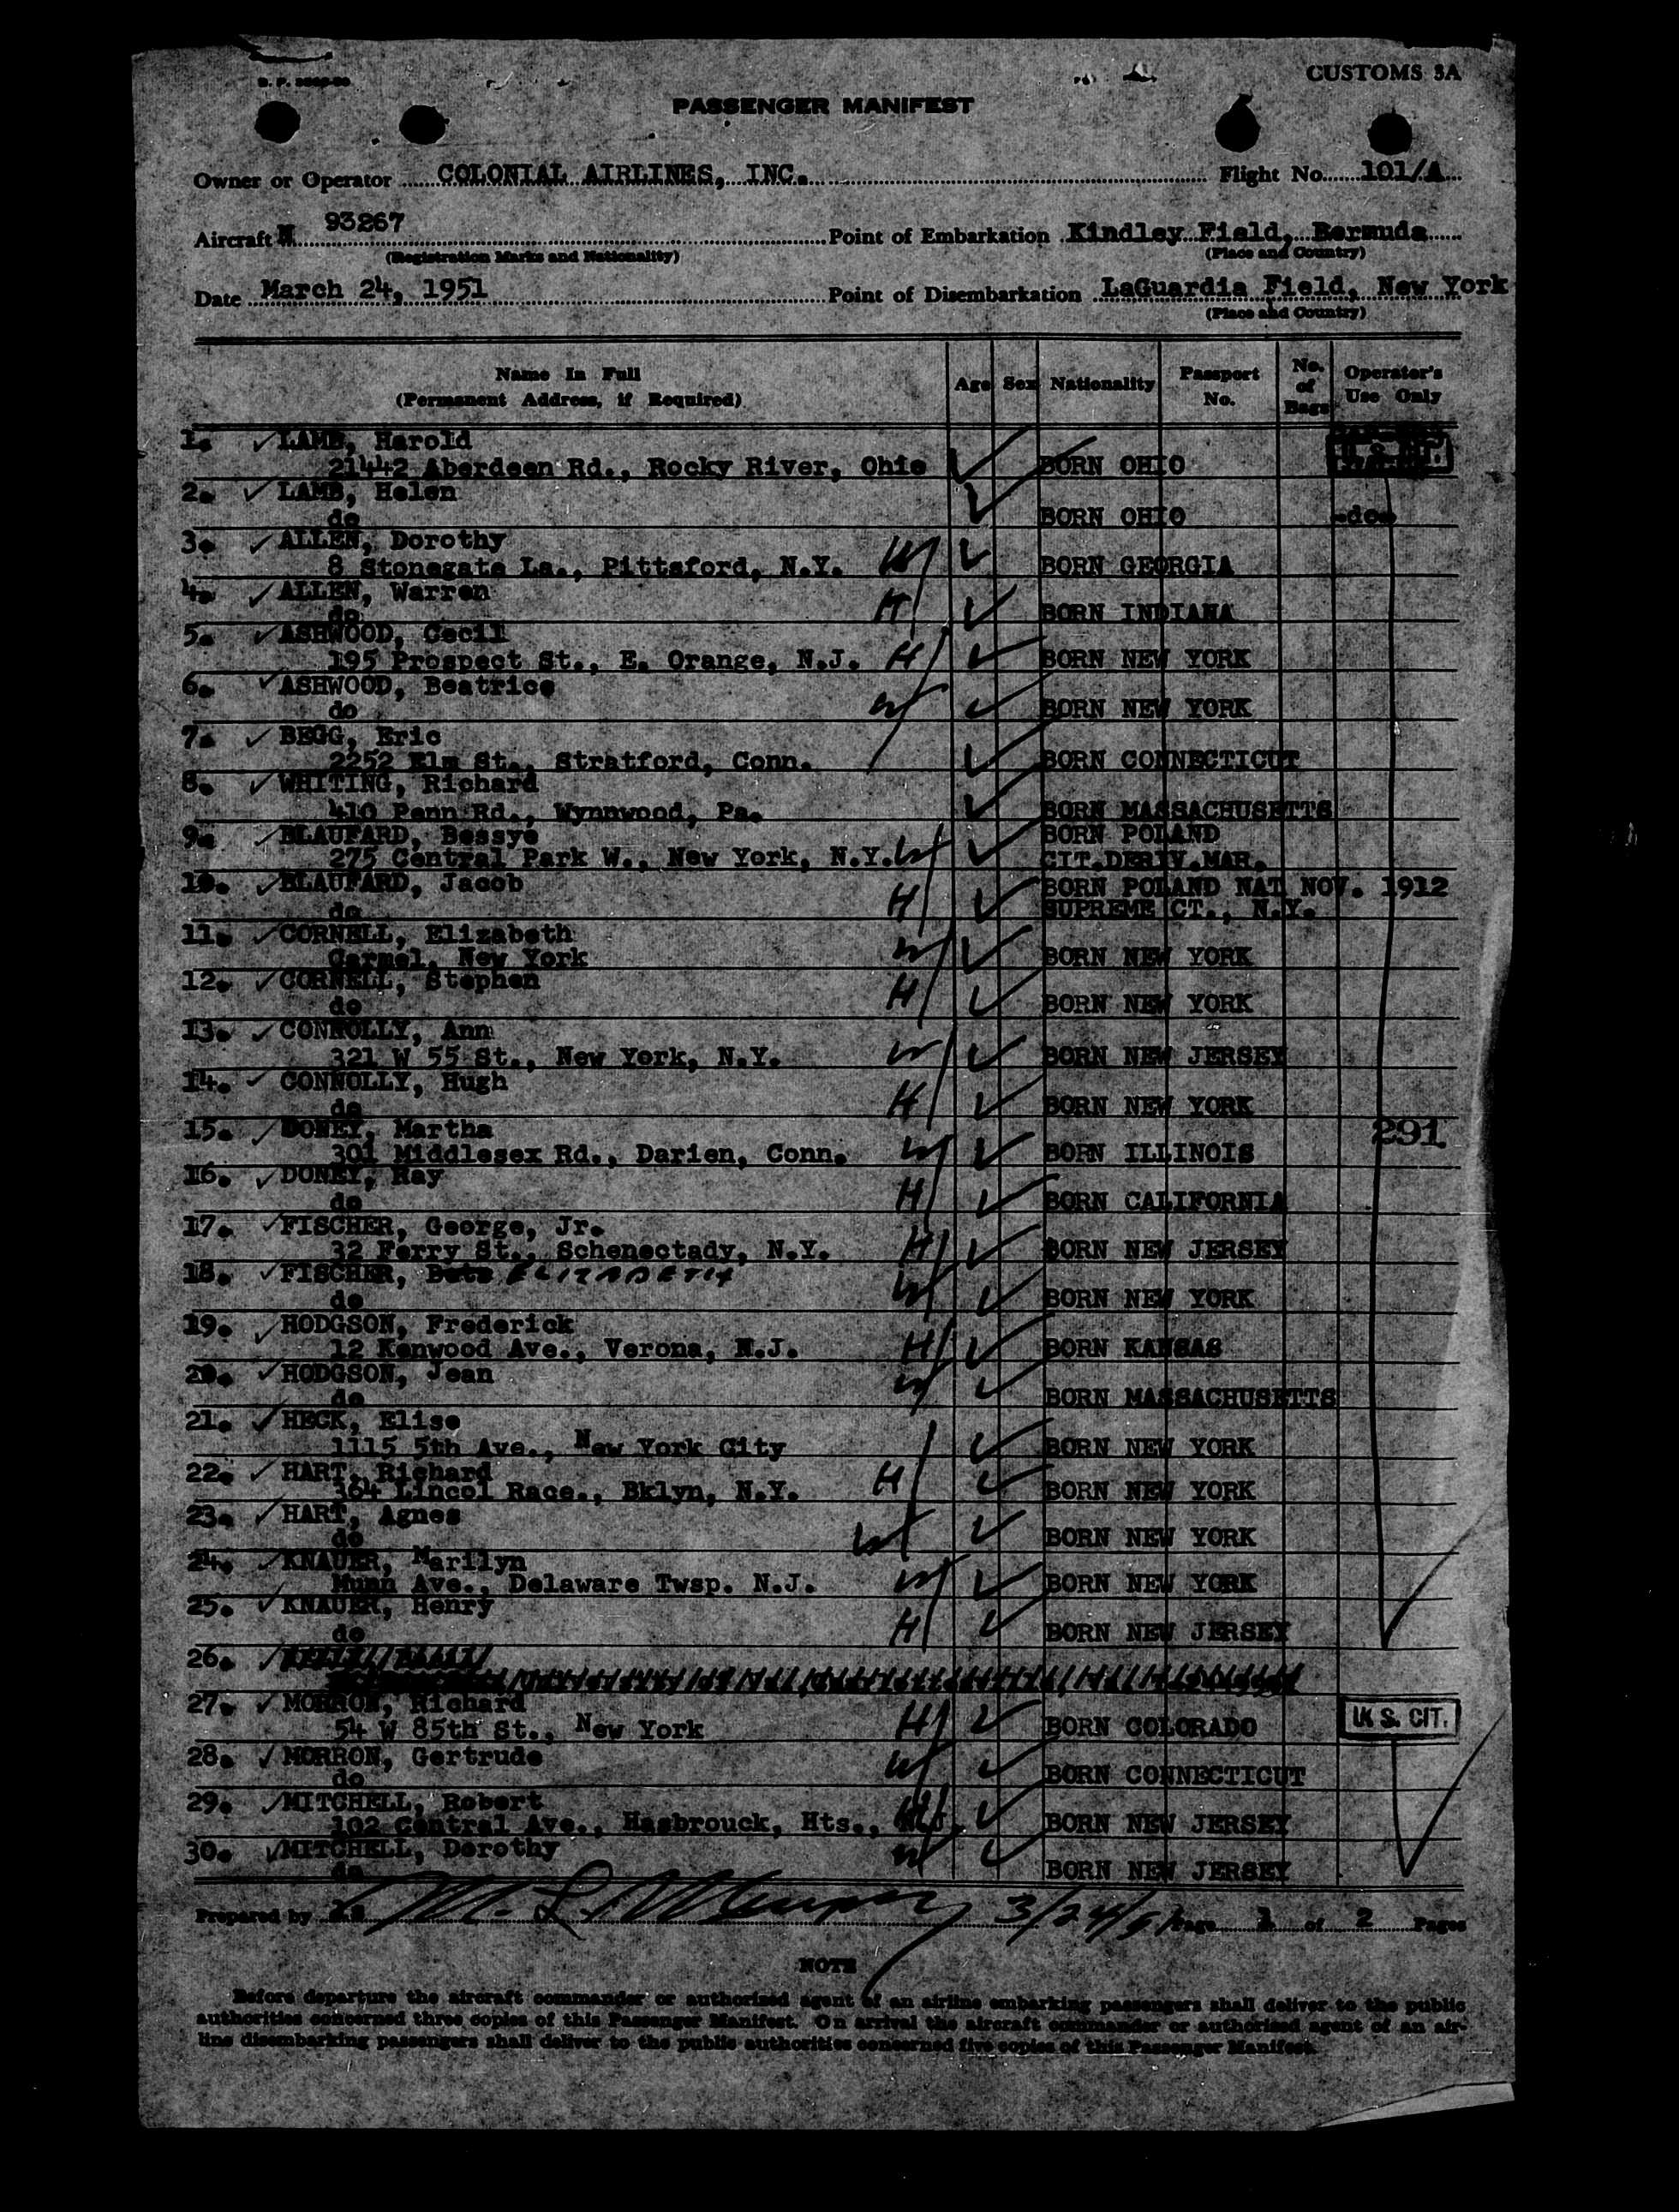 CUSTOMS 3A
PASSENGER MANIFEST
Owner or Operator COLONIAL AIRLINES, INC. Flight No. 101/A
Aircraft N 93267 Point of Embarkation Kindley Field, Bermuda
(Registration Marks and Nationality) (Place and Country)
Date March 24, 1951 Point of Disembarkation LaGuardia Field, New York
(Place and Country)
Name In Full Age Sex Nationality Passport No. No. of Bags Operator's Use Only
(Permanent Address, if Required)
1. ✓ LAMB, Harold
21442 Aberdeen Rd., Rocky River, Ohio BORN OHIO U.S. CIT.
2. ✓ LAMB, Helen
do BORN OHIO -do-
3. ✓ ALLEN, Dorothy
8 Stonegate La., Pittsford, N.Y. W BORN GEORGIA
4. ✓ ALLEN, Warren
do H BORN INDIANA
5. ✓ ASHWOOD, Cecil
195 Prospect St., E. Orange, N.J. H BORN NEW YORK
6. ✓ ASHWOOD, Beatrice
do W BORN NEW YORK
7. ✓ BEGG, Eric
2252 Elm St., Stratford, Conn. BORN CONNECTICUT
8. ✓ WHITING, Richard
410 Penn Rd., Wynnwood, Pa. BORN MASSACHUSETTS
9. ✓ BLAUFARD, Bessye BORN POLAND
275 Central Park W., New York, N.Y. W CIT.DERIV.MAR.
10. ✓ BLAUFARD, Jacob H BORN POLAND NAT NOV. 1912
do SUPREME CT., N.Y.
11. ✓ CORNELL, Elizabeth
Carmel, New York W BORN NEW YORK
12. ✓ CORNELL, Stephen
do H BORN NEW YORK
13. ✓ CONNOLLY, Ann
321 W 55 St., New York, N.Y. W BORN NEW JERSEY
14. ✓ CONNOLLY, Hugh
do H BORN NEW YORK
15. ✓ DONEY, Martha 291
301 Middlesex Rd., Darien, Conn. W BORN ILLINOIS
16. ✓ DONEY, Ray
do H BORN CALIFORNIA
17. ✓ FISCHER, George, Jr.
32 Ferry St., Schenectady, N.Y. H BORN NEW JERSEY
18. ✓ FISCHER, ELIZABETH
do W BORN NEW YORK
19. ✓ HODGSON, Frederick
12 Kenwood Ave., Verona, N.J. H BORN KANSAS
20. ✓ HODGSON, Jean
do W BORN MASSACHUSETTS
21. ✓ HECK, Elise
1115 5th Ave., New York City BORN NEW YORK
22. ✓ HART, Richard
364 Lincol Race., Bklyn, N.Y. H BORN NEW YORK
23. ✓ HART, Agnes
do W BORN NEW YORK
24. ✓ KNAUER, Marilyn
Munn Ave., Delaware Twsp. N.J. W BORN NEW YORK
25. ✓ KNAUER, Henry
do H BORN NEW JERSEY
26.
27. ✓ MORRON, Richard
54 W 85th St., New York H BORN COLORADO U.S. CIT.
28. ✓ MORRON, Gertrude
do W BORN CONNECTICUT
29. ✓ MITCHELL, Robert
102 Central Ave., Hasbrouck, Hts., BORN NEW JERSEY
30. ✓ MITCHELL, Dorothy
do W BORN NEW JERSEY
Prepared by 3/24/51 Page 1 of 2 Pages
NOTE
Before departure the aircraft commander or authorized agent of an airline embarking passengers shall deliver to the public
authorities concerned three copies of this Passenger Manifest. On arrival the aircraft commander or authorized agent of an air-
line disembarking passengers shall deliver to the public authorities concerned five copies of this Passenger Manifest.